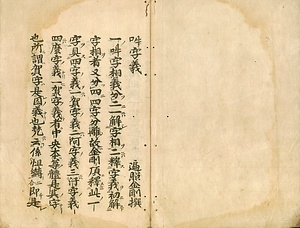 吽字義
遍照金剛撰
一吽字相義分二一解字相二釋字義初解
字相者又分四四字分離故金剛頂釋此一
字具四字義一賀字義二阿字義三汙字義
四麼字義一賀字義者中央本尊體是其字
也所謂賀字是因義也梵云係怛嚩二合即是